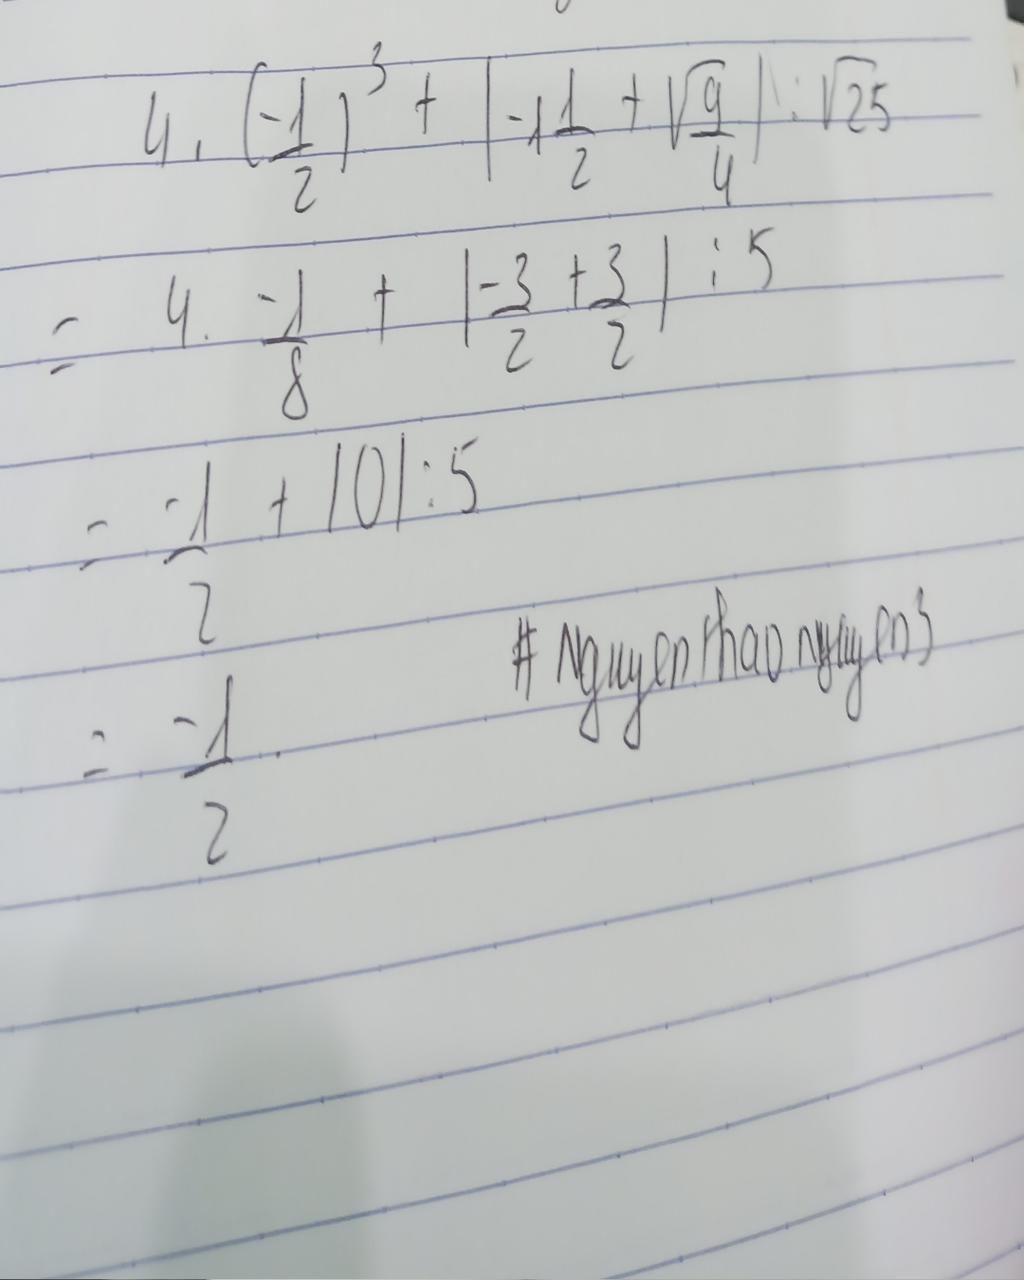 4. (-1/2)³ + |-1 1/2 + √9/4| : √25
= 4. -1/8 + |-3/2 + 3/2| : 5
= -1/2 + |0| : 5
# Nguyenthaonguyen3
= -1/2.